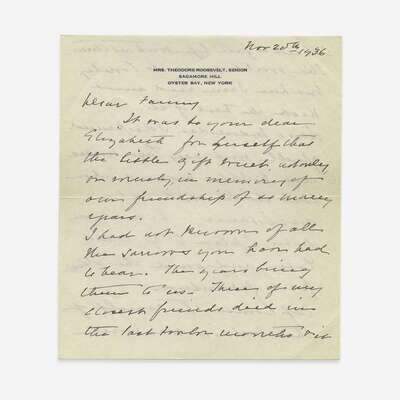 Nov 20th 1936
MRS. THEODORE ROOSEVELT, SENIOR
SAGAMORE HILL
OYSTER BAY, NEW YORK
Dear Fanny
It was to your dear
Elizabeth for herself that
the little gift went
in memory of
our friendship of so many
years.
I had not known of all
the sorrows you have had
to bear. The years bring
them to us. Three of my
closest friends died in
the last twelve months